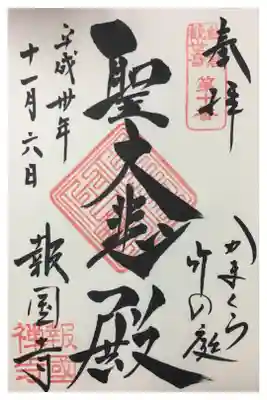 奉拝
第十番
かまくら
竹の庭
聖大悲殿
平成卅年
十一月六日
報国寺
報國禅寺